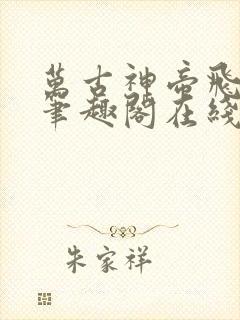 萬古神帝飛
筆趣閣在綫
朱家祥